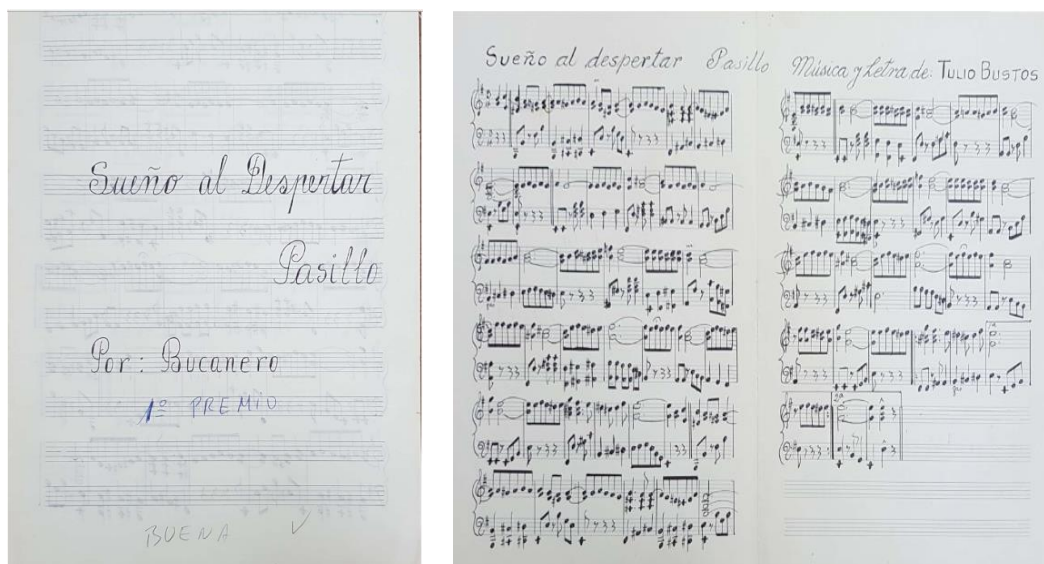 Sueño al Despertar
Pasillo
Por: Bucanero
1º PREMIO
BUENA
Sueño al despertar Pasillo Música y Letra de: TULIO BUSTOS
2ª